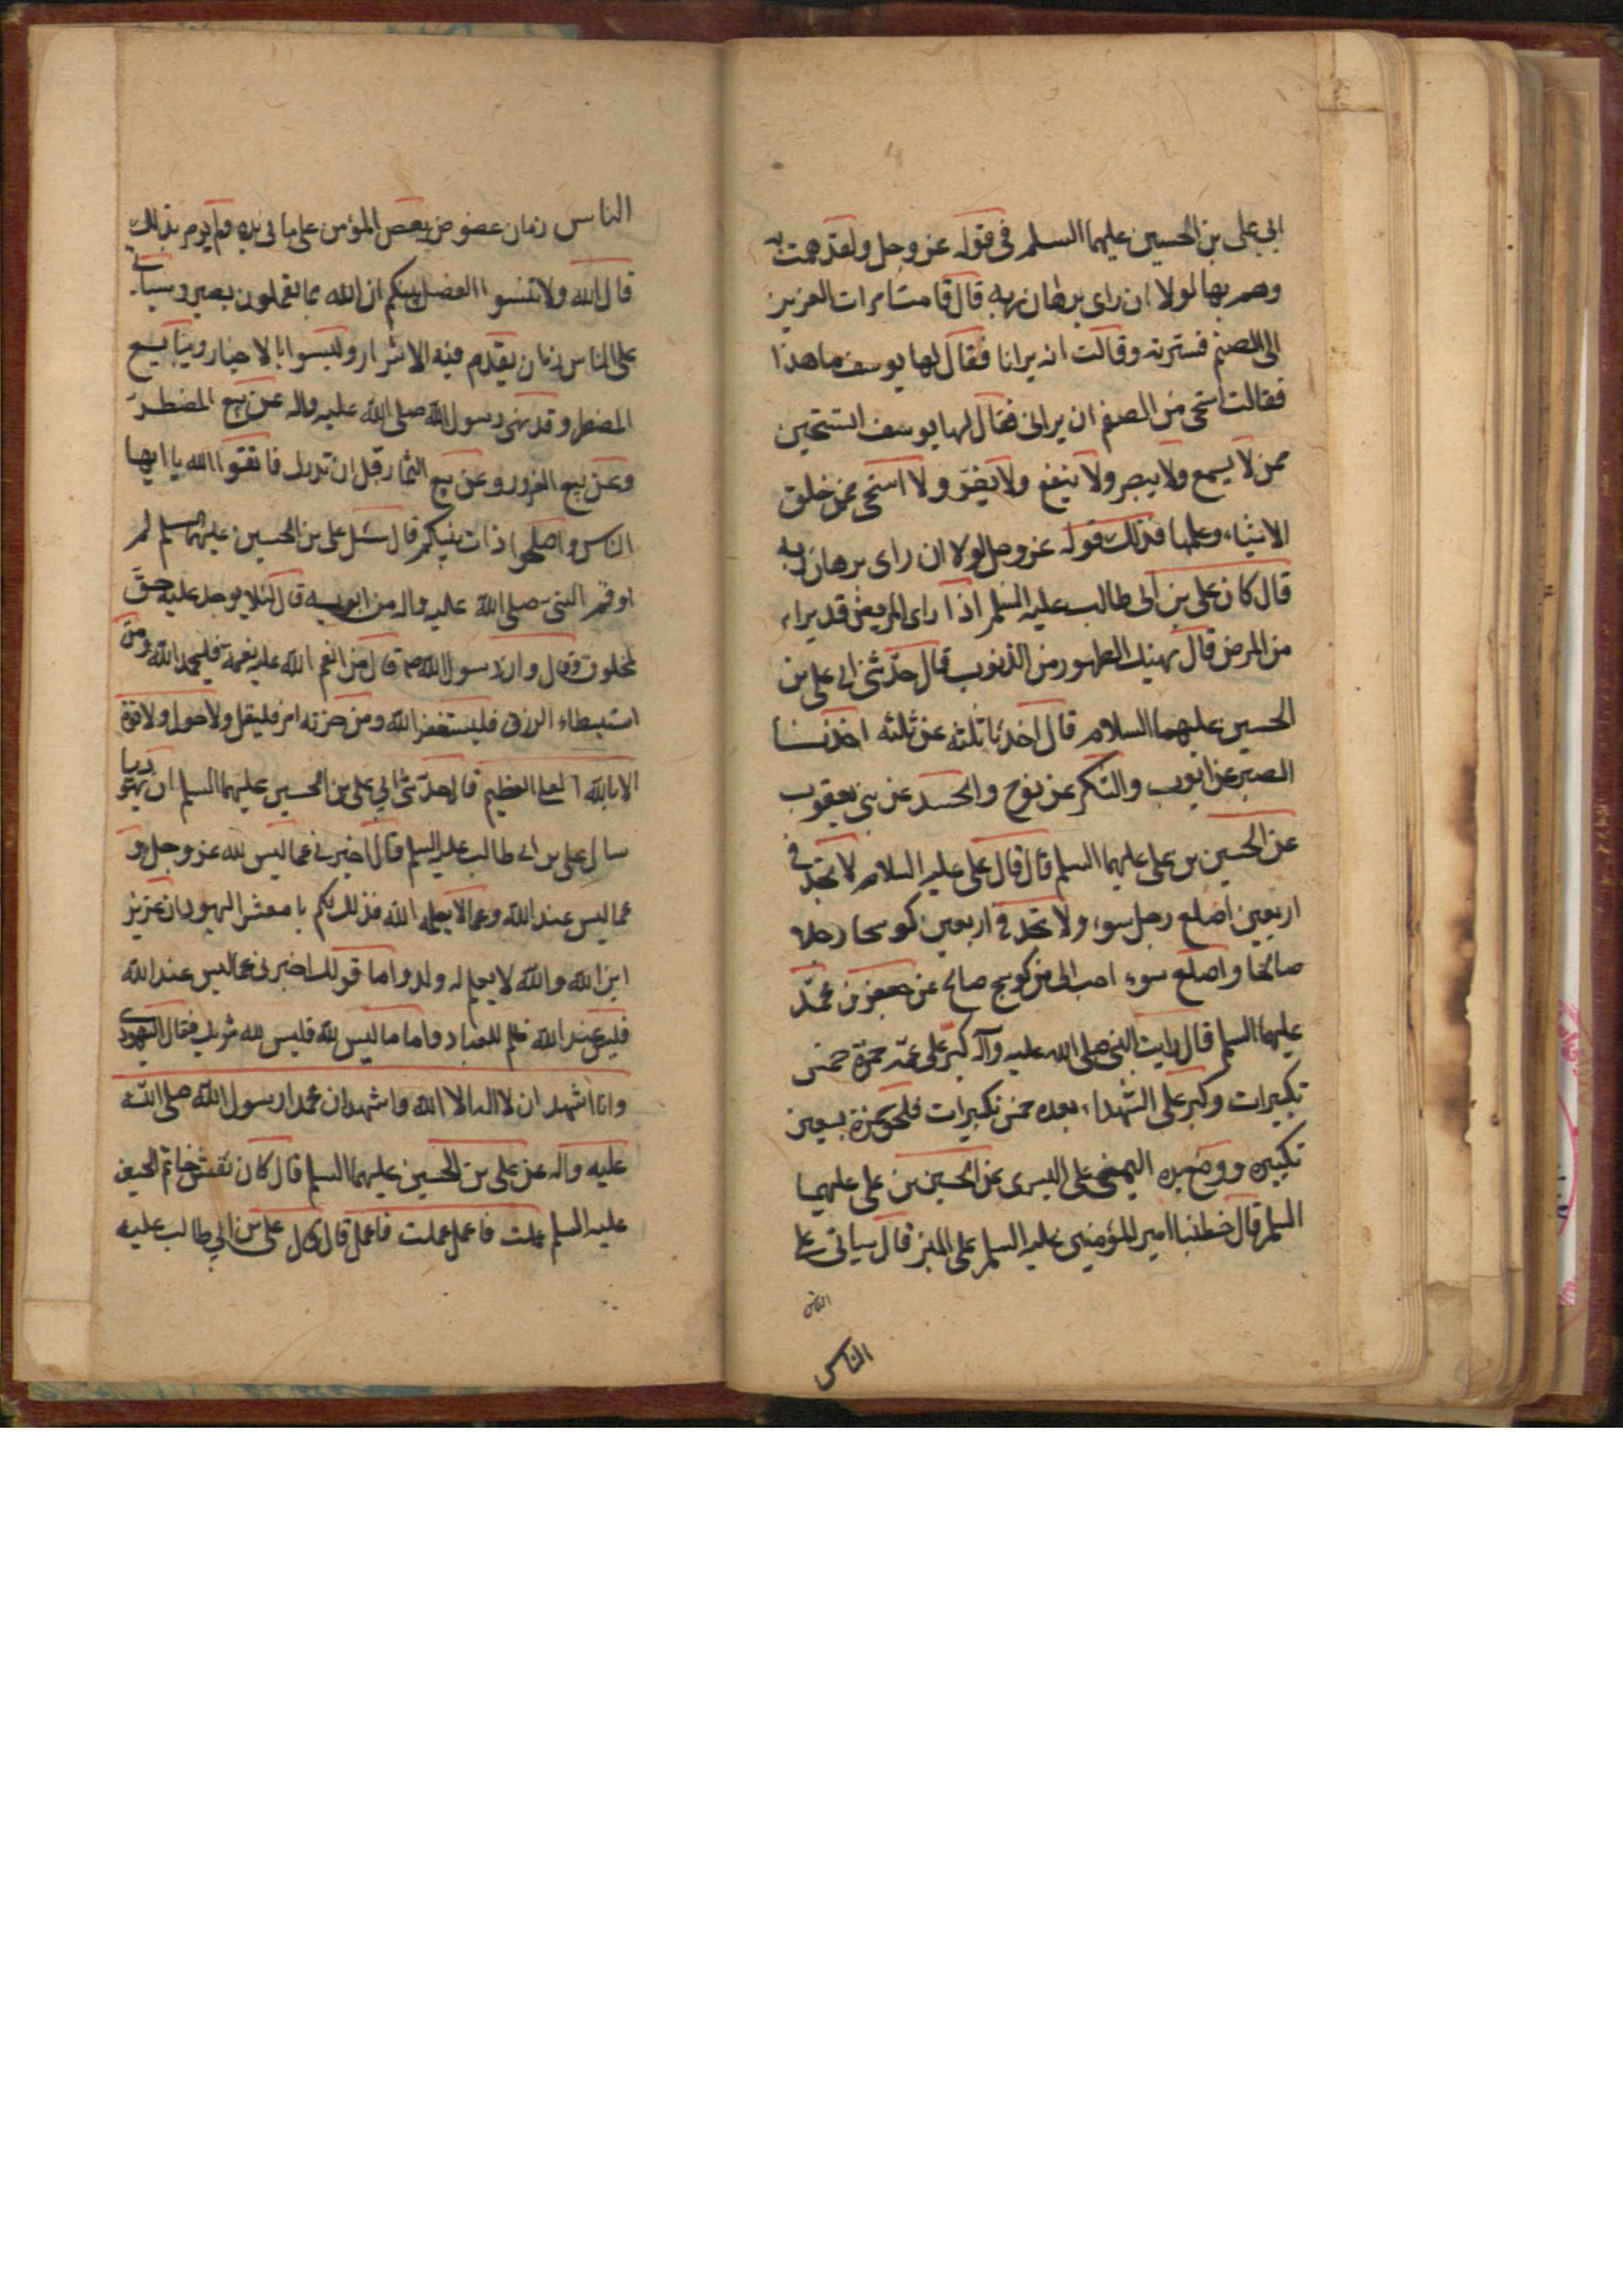 ابي على بن الحسين عليهما السلم في قوله عز وجل ولقد همت به
وهم بها لولا ان راى برهان ربه قال قامت امرات العزيز
الى الصنم فسترته وقالت انه يرانا فقال لها يوسف ما هذا
فقالت استحى من الصنم ان يرانى فقال لها يوسف اتستحين
ممن لا يسمع ولا يبصر ولا ينفع ولا يضر ولا استحى ممن خلق
الاشياء وعلمها فذلك قوله عز وجل لولا ان راى برهان ربه
قال كان على بن ابى طالب عليه السلم اذا راى المريض قد براء
من المرض قال يهنيك الطهور من الذنوب قال حدثنى ابى على بن
الحسين عليهما السلام قال اخذنا ثلثه عن ثلثه اخذنا
الصبر عن ايوب والشكر عن نوح والحسد عن بنى يعقوب
عن الحسين بن على عليهما السلم قال قال على عليه السلام لا تجد في
اربعين اصلع رجل سوء ولا تجد في اربعين كوسجا رجلا
صالحا واصلع سوء احب الى من كوسج صالح عن جعفر بن محمد
عليهما السلم قال رايت النبي صلى الله عليه وآله كبر على عمه حمزة خمس
تكبيرات وكبر على الشهداء بعده خمس تكبيرات فلحق حمزة بسبعين
تكبيره ووضع يده اليمنى على اليسرى عن الحسين بن على عليهما
السلم قال خطبنا امير المؤمنين عليه السلم على المنبر قال سياتى على
الناس
الناس
الناس زمان عضوض يعض المؤمن على ما في يده ولم يومر بذلك
قال الله ولا تنسوا الفضل بينكم ان الله بما تعملون بصير وسياتى
على الناس زمان يقدم فيه الاشرار وليسوا بالاخيار ويبايع
المضطر وقد نهى رسول الله صلى الله عليه واله عن بيع المضطر
وعن بيع الغرور وعن بيع الثمار قبل ان تدرك فاتقوا الله يا ايها
الناس واصلحوا ذات بينكم قال سئل على بن الحسين عليهما السلم لم
اوتم النبى صلى الله عليه واله من ابويه قال لئلا يوجد عليه حق
لمخلوق وقال وان رسول الله ص قال من انعم الله عليه نعمة فليحمد الله ومن
استبطاء الرزق فليستغفر الله ومن حزنه امر فليقل ولا حول ولا قوة
الا بالله العلى العظيم قال حدثنى ابي على بن الحسين عليهما السلم ان يهوديا
سال على بن ابى طالب عليه السلم قال اخبرنى عما ليس لله عز وجل و
عما ليس عند الله وعما لا يعلمه الله فذلك قولكم يا معشر اليهود ان عزيز
ابن الله والله لا يعلم له ولد واما قولك اخبرنى عما ليس عند الله
فليس عند الله ظلم للعباد واما ما ليس لله فليس لله شريك فقال اليهودى
وانا اشهد ان لا اله الا الله واشهد ان محمدا رسول الله صلى الله
عليه واله عن على بن الحسين عليهما السلم قال كان نقش خاتم الحسين
عليه السلم علمت فاعمل عملت فاعمل قال قال على بن ابي طالب عليه